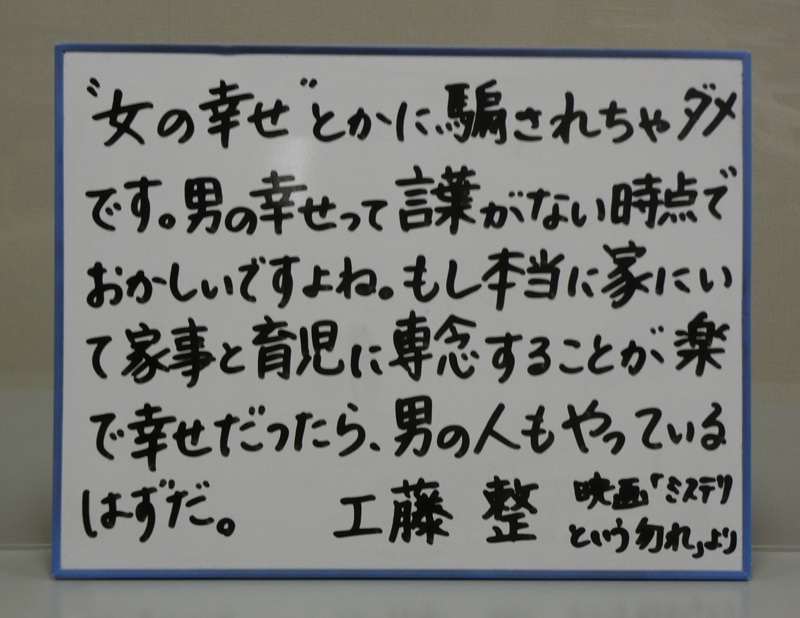 〝女の幸せ〟とかに騙されちゃダメ
です。男の幸せって言葉がない時点で
おかしいですよね。もし本当に家にい
て家事と育児に専念することが楽
で幸せだったら、男の人もやっている
はずだ。
工藤 整
映画「ミステリ
という勿れ」より